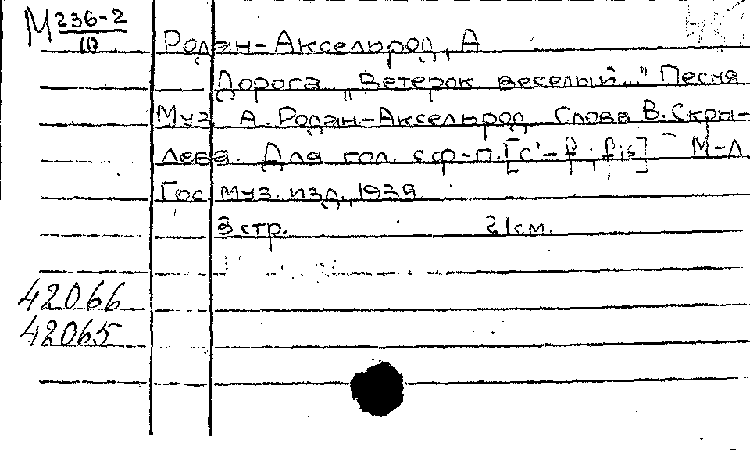 М 236-2
10
Родэн-Аксельрод, А
Дорога. "Ветерок веселый.." Песня
Муз А. Родэн-Аксельрод. Слова В. Скры-
лева. Для гол. с ф-п. [c'- f'; fis] М-Л
Гос муз. изд., 1939
3 стр. 21 см.
42066
42065